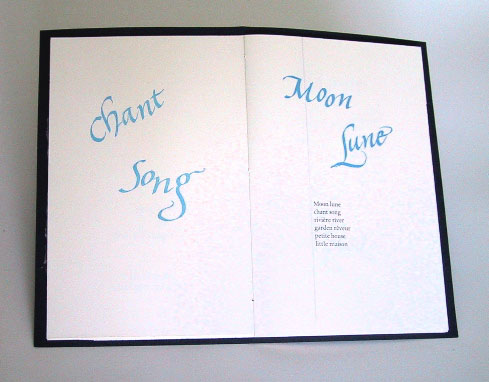 Chant
Song
Moon
Lune
Moon lune
chant song
rivière river
garden rêveur
petite house
little maison